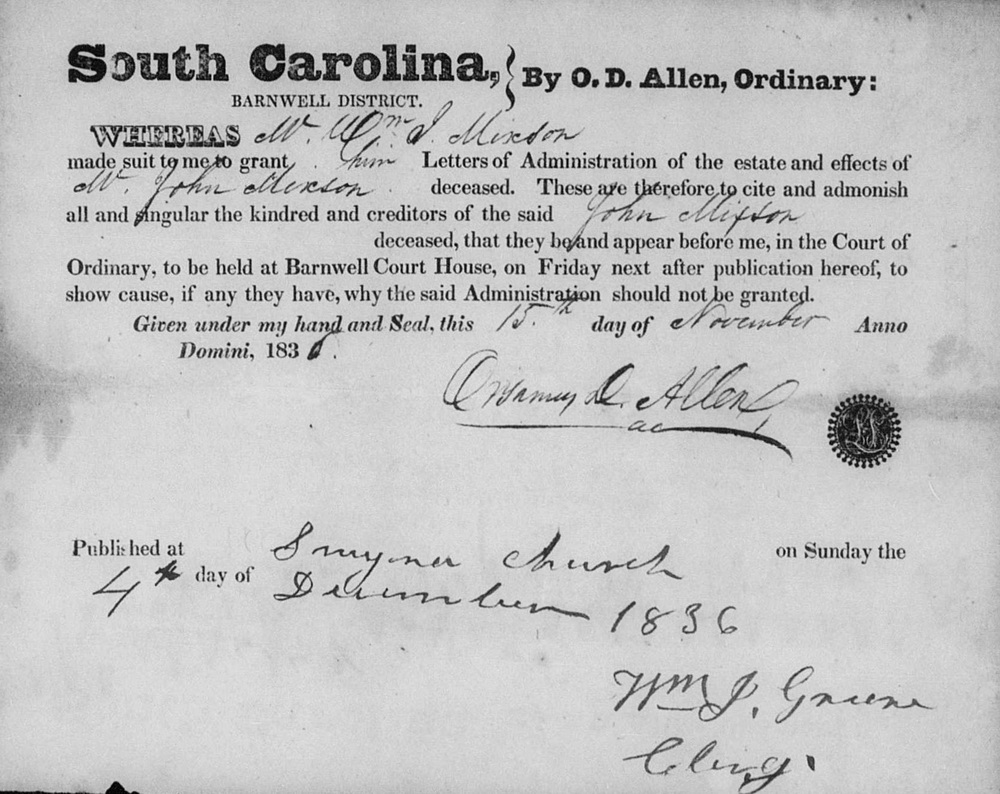 South Carolina, } By O. D. Allen, Ordinary:
BARNWELL DISTRICT.
WHEREAS Mr. Wm J. Mixson
made suit to me to grant him Letters of Administration of the estate and effects of
Mr. John Mixson deceased. These are therefore to cite and admonish
all and singular the kindred and creditors of the said John Mixson
deceased, that they be and appear before me, in the Court of
Ordinary, to be held at Barnwell Court House, on Friday next after publication hereof, to
show cause, if any they have, why the said Administration should not be granted.
Given under my hand and Seal, this 15th day of November Anno
Domini, 1836.
Orsamus D. Allen
LS
Published at Smyrna Church on Sunday the
4th day of December 1836
Wm J. Greene
Clerg.